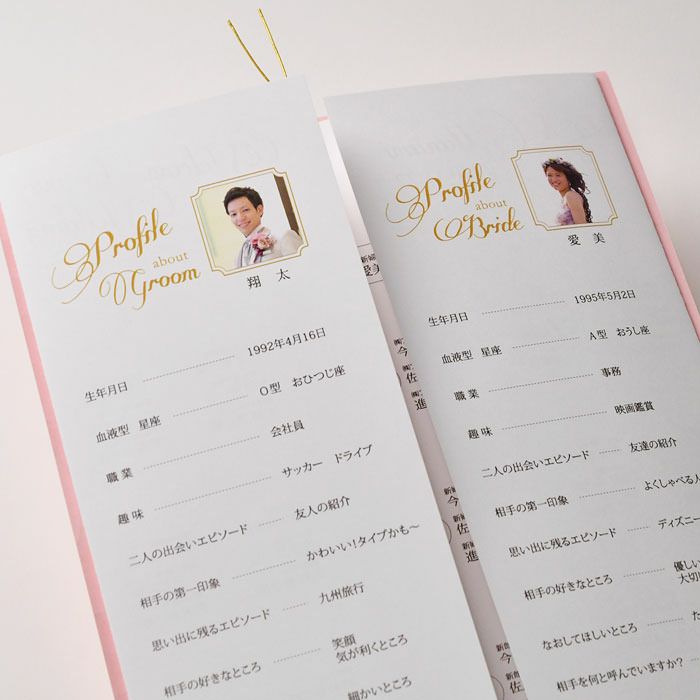 Profile
about
Groom
翔 太
生年月日 1992年4月16日
血液型 星座 O型 おひつじ座
職業 会社員
趣味 サッカー ドライブ
二人の出会いエピソード 友人の紹介
相手の第一印象 かわいい!タイプかも〜
思い出に残るエピソード 九州旅行
相手の好きなところ 笑顔
気が利くところ
細かいところ
Profile
about
Bride
愛 美
生年月日 1995年5月2日
血液型 星座 A型 おうし座
職業 事務
趣味 映画鑑賞
二人の出会いエピソード 友達の紹介
相手の第一印象 よくしゃべる人
思い出に残るエピソード ディズニー
相手の好きなところ 優しい
大切
なおしてほしいところ た
相手を何と呼んでいますか?
愛美
今
佐
進
今
佐
進